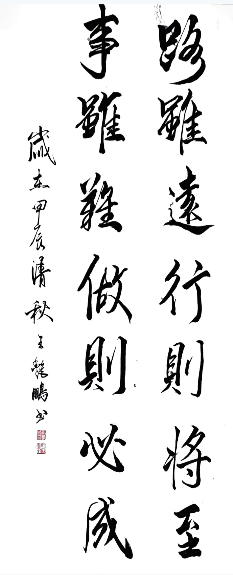 路雖遠行則將至
事雖難做則必成
歲在甲辰清秋王 鵬書